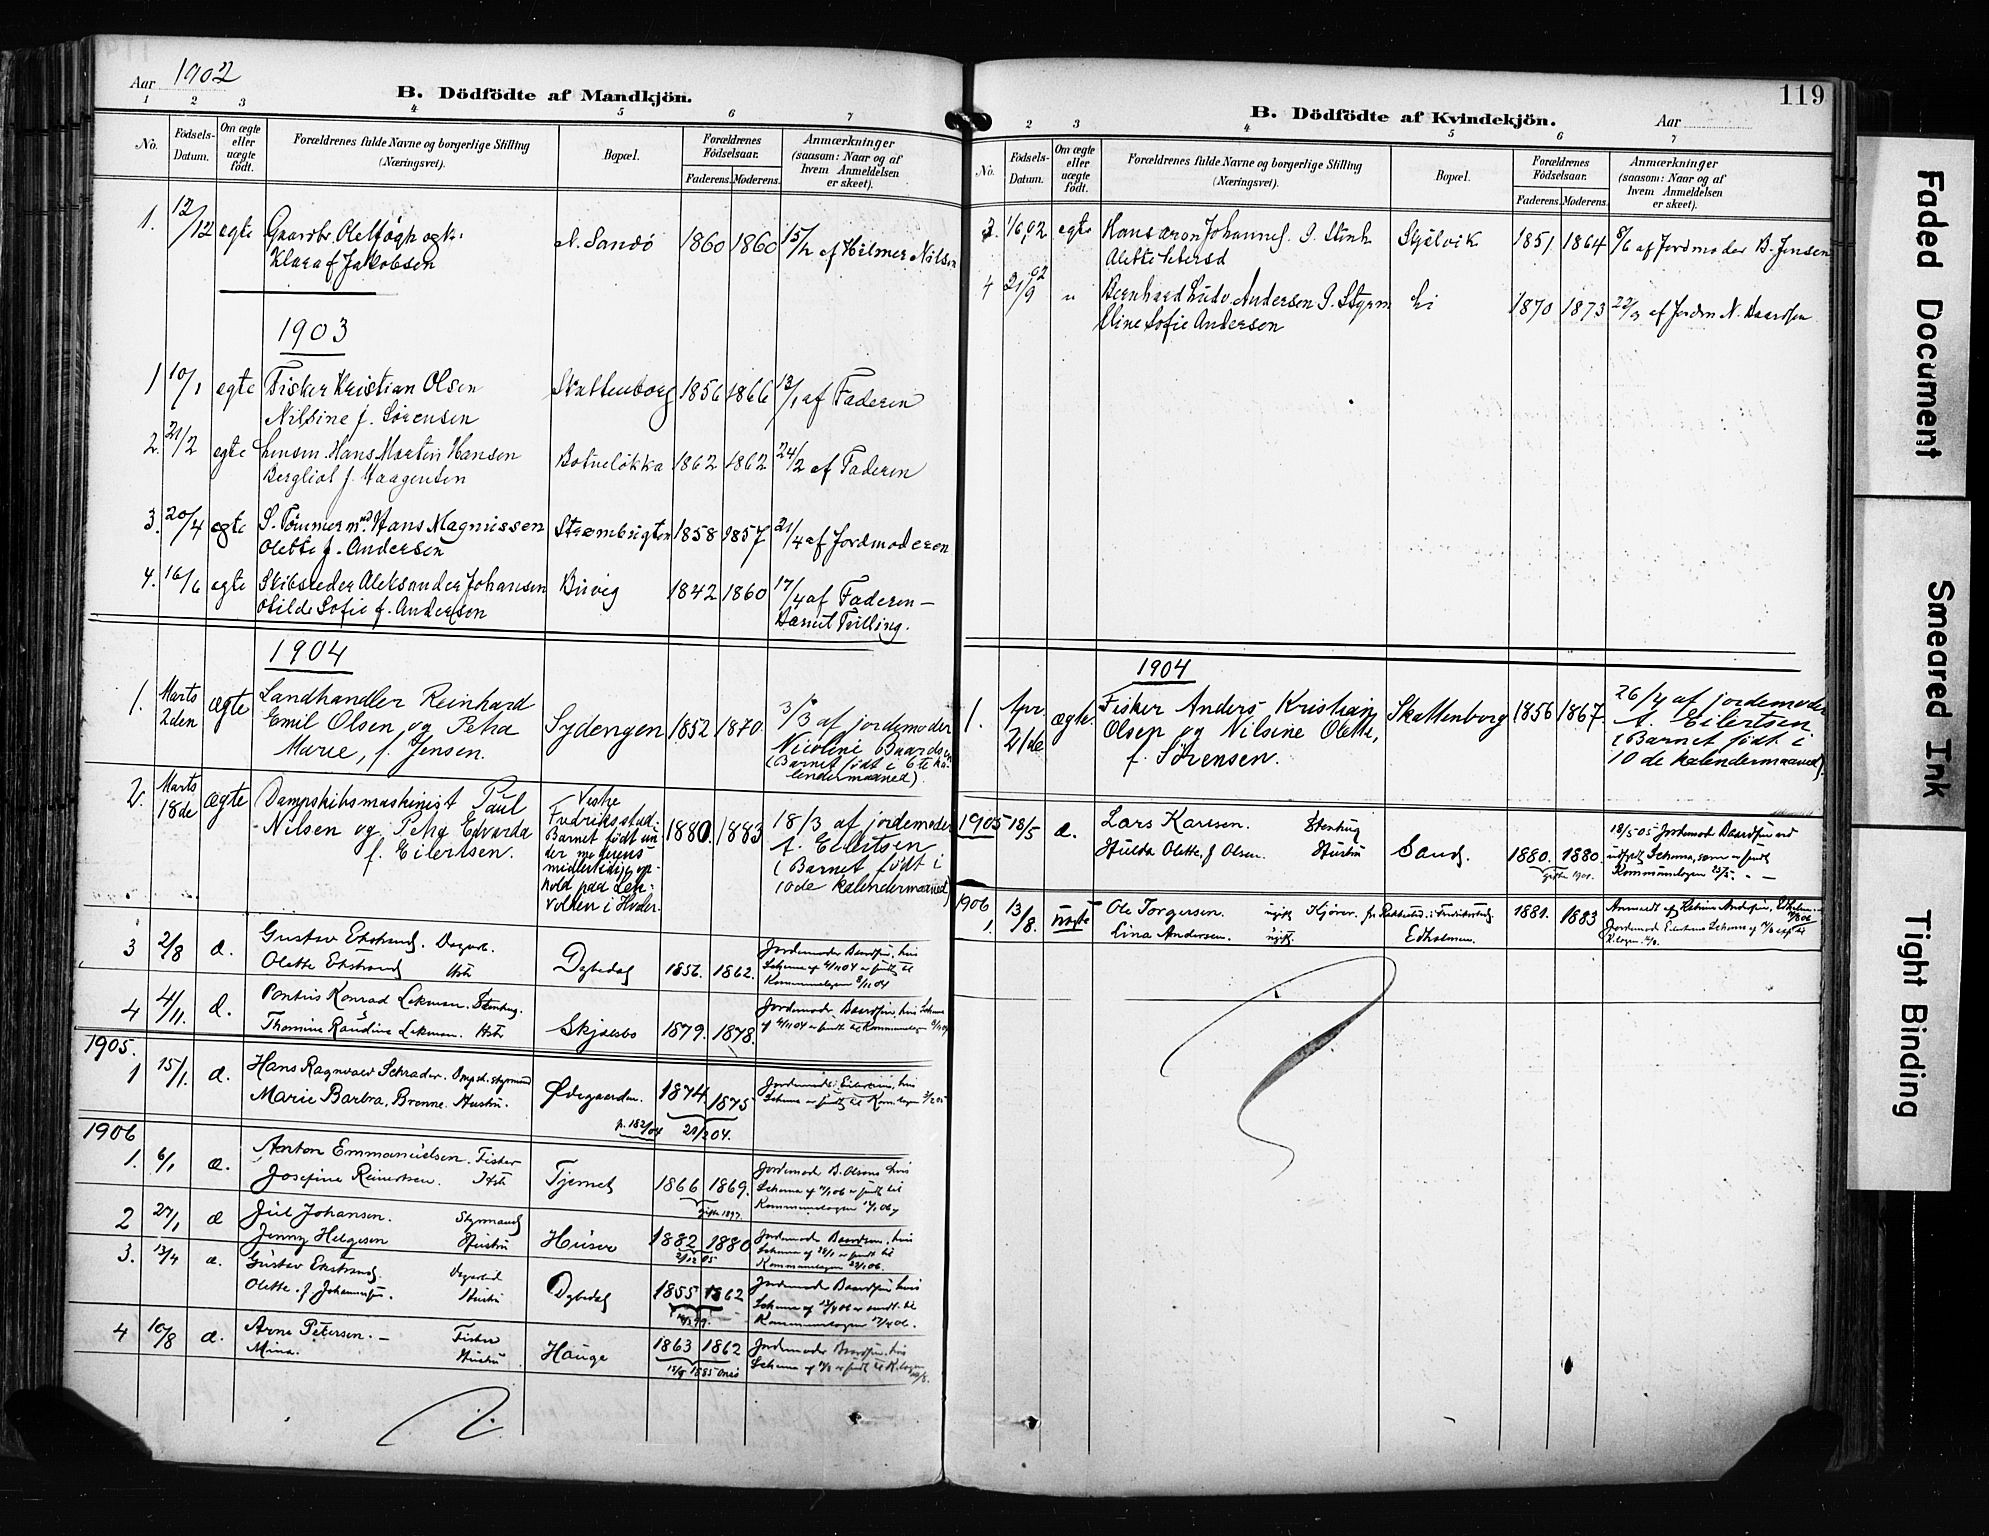 Aar 1902
B. Dödfödte af Mandkjön.
1 2 3 4 5 6 7
No.
Födsels-Datum.
Om ægte eller uægte födt.
Forældrenes fulde Navne og borgerlige Stilling (Næringsvei).
Bopæl.
Forældrenes Födselsaar.
Faderens. Moderens.
Anmærkninger (saasom: Naar og af hvem Anmeldelsen er skeet).
1. 12/12 egte Gaardbr. Ole
Klara f. Jakobsen
N. Sandö 1860 1860 15/12 af Hilmer Nilsen
1903
1 10/1 egte Fisker Kristian Olsen
Nilsine f. Sørensen
Skattenborg 1856 1866 12/1 af Faderen
2. 21/2 egte Hans Martin Hansen
Bergliot f. Haagensen
Botneløkka 1862 1862 24/2 af Faderen
3. 20/4 egte S. Tømmermd. Hans Magnussen
Olette f. Andersen
Strømbugten 1858 1857 21/4 af Jordmoderen
4. 16/6 egte Skibsreder Aleksander Johansen
Otilde Sofie f. Andersen
Buvig 1842 1860 17/4 af Faderen –
Barnet Tvilling.
1904
1. Marts 2den ægte Landhandler Reinhard
Emil Olsen og Petra
Marie, f. Jensen.
Sydengen 1852 1870.
3/3 af jordemoder
Nicoline Baardsen
(Barnet født i 6te ka-
lendermaaned).
2. Marts 18de ægte Dampskibsmaskinist Paul
Nilsen og Petra Edvarda
f. Eilertsen.
Vestre
Fredriksstad.
Barnet født un-
der moderens
midlertidige op-
hold paa Løk-
volden i Hvaler.
1880. 1883
18/3 af jordemoder
A. Eilertsen
(Barnet født i
10de kalendermaaned)
3 2/8 æ. Gustav Ekstrand. Dagarb.
Olette Ekstrand Hstr
Dybedal 1856. 1862.
Jordemoder Baardsen, hvis
Schema af 4/11 04 er sendt til
Kommunelægen 8/11 04
4 4/11. æ. Pontus Konrad Lekman. Stenhug.
Thomine Raudine Lekman. Hstr
Skjælsbo 1879. 1878.
Jordemoder Baardsen, hvis Schema
1905.
1 15/1. æ. Hans Ragnvald Schrader. Dmpsk.styrmand
Marie Barbra, Brenne. Hustru.
Ødegaarden. 1874. 1875
p. 182/04 21/2 04.
Jordemoder Eilertsen, hvis
Schema er sendt til Kom.lægen 3/2 05
1906
1. 6/1 æ. Anton Emmanuelsen. Fisker
Josefine Reinertsen. Hstr
Tjernet 1866 1869.
gifte 1897.
Jordemoder B. Olsens hvis
Schema af 9/1 06 er sendt til
Kommunelægen
2 27/1 æ Jul Johansen. Styrmand
Jenny Helgesen Hustru
Huser 1882 1880
2/12 05
Jordemoder Baardsen, hvis
Schema af 28/1 er sendt til
Kommunelægen
3. 13/4 æ. Gustav Ekstrand. Dagarbeid
Olette. f Johannesen. Hustru
Dybedal 1855 1862
Jordemoder Baardsen hvis
Schema af 17/4 06 er sendt til
Kommunelægen 17/4 06.
4 10/8 æ. Arne Petersen. – Fisker
Mina. Hustru
Hauge 1863 1862
1885 Onsø
Jordemoder Baardsen, hvis
Schema er sendt til K.lægen
119
B. Dödfödte af Kvindekjön.
Aar
2 3 4 5 6 7
No.
Födsels-Datum.
Om ægte eller uægte födt.
Forældrenes fulde Navne og borgerlige Stilling (Næringsvei).
Bopæl.
Forældrenes Födselsaar.
Faderens. Moderens.
Anmærkninger (saasom: Naar og af hvem Anmeldelsen er skeet).
3. 1/6 02 egte Hans Aron Johannes. S. Stenh
Alette Petersd
Skjelvik 1851 1864 8/6 af Jordmoder B. Jensen
4 21/9 02 " Bernhard Ludv. Andersen S. Styrm
Eline Sofie Andersen
1870 1873 22/9 af Jordm N. Baardsen
1904
1. Apr. 21de ægte Fisker Anders Kristian
Olsen og Nilsine Olette,
f. Sørensen.
Skattenborg 1856 1867.
26/4 af jordemoder
A. Eilertsen.
(Barnet født i
10de kalendermaaned).
1905 18/5 æ. Lars Karlsen. Stenhug
Hulda Olette, f Olsen. Hustru
Sand. 1880. 1880.
gifte 1901.
18/5 05 Jordemod Baardsen ved
udfyldt Schema, som er sendt
Kommunelægen 25/5.
1906
1. 13/8. uægte Ole Torgersen. ugift Kjører. fr. Rekkestad i Fredriksstad
Lina Andersen. ugift.
Edholmen. 1881. 1883
Jordemod Eilertsens Schema
Faded Document
Smeared Ink
Tight Binding